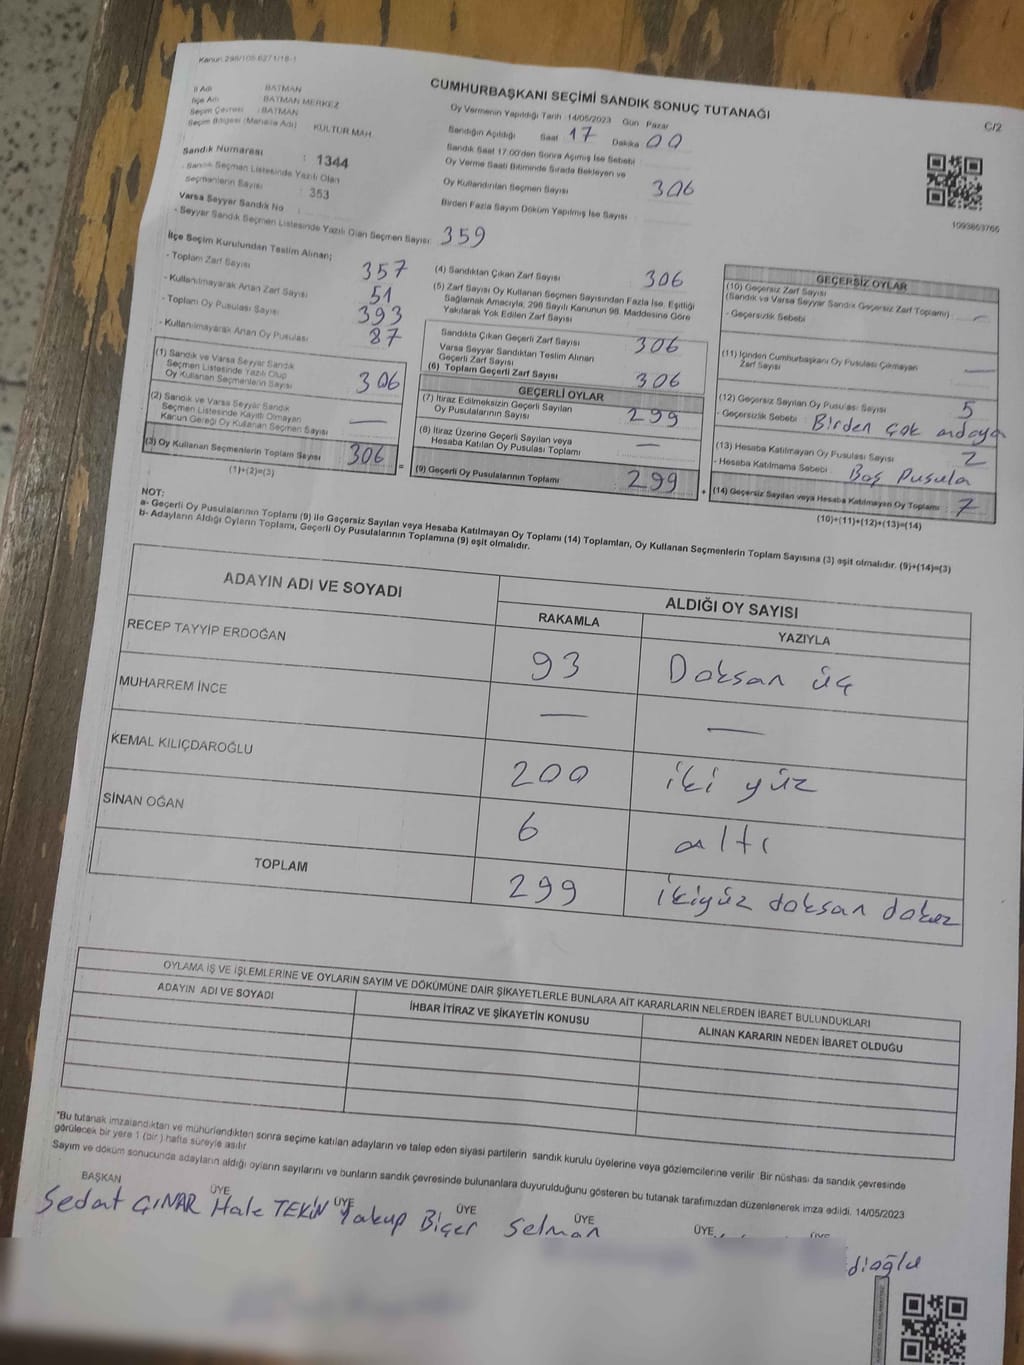 Kanun 298/105 6271/18-1
CUMHURBAŞKANI SEÇİMİ SANDIK SONUÇ TUTANAĞI
C/2
İl Adı : BATMAN
İlçe Adı : BATMAN MERKEZ
Seçim Çevresi : BATMAN
Seçim Bölgesi (Mahalle Adı) KÜLTÜR MAH.
Sandık Numarası : 1344
- Sandık Seçmen Listesinde Yazılı Olan
Seçmenlerin Sayısı : 353
Varsa Seyyar Sandık No
- Seyyar Sandık Seçmen Listesinde Yazılı Olan Seçmen Sayısı: 359
Oy Vermenin Yapıldığı Tarih : 14/05/2023 Gün Pazar
Sandığın Açıldığı Saat 17 Dakika 00
Sandık Saat 17:00'den Sonra Açılmış İse Sebebi
Oy Verme Saati Bitiminde Sırada Bekleyen ve
Oy Kullandırılan Seçmen Sayısı 306
Birden Fazla Sayım Döküm Yapılmış İse Sayısı
1093853765
İlçe Seçim Kurulundan Teslim Alınan;
- Toplam Zarf Sayısı 357
- Kullanılmayarak Artan Zarf Sayısı 51
- Toplam Oy Pusulası Sayısı 393
- Kullanılmayarak Artan Oy Pusulası 87
(1) Sandık ve Varsa Seyyar Sandık
Seçmen Listesinde Yazılı Olup
Oy Kullanan Seçmenlerin Sayısı 306
(2) Sandık ve Varsa Seyyar Sandık
Seçmen Listesinde Kayıtlı Olmayan
Kanun Gereği Oy Kullanan Seçmen Sayısı —
(3) Oy Kullanan Seçmenlerin Toplam Sayısı 306 =
(1)+(2)=(3)
(4) Sandıktan Çıkan Zarf Sayısı 306
(5) Zarf Sayısı Oy Kullanan Seçmen Sayısından Fazla İse, Eşitliği
Sağlamak Amacıyla; 298 Sayılı Kanunun 98. Maddesine Göre
Yakılarak Yok Edilen Zarf Sayısı
Sandıkta Çıkan Geçerli Zarf Sayısı 306
Varsa Seyyar Sandıktan Teslim Alınan
Geçerli Zarf Sayısı
(6) Toplam Geçerli Zarf Sayısı 306
GEÇERLİ OYLAR
(7) İtiraz Edilmeksizin Geçerli Sayılan
Oy Pusulalarının Sayısı 299
(8) İtiraz Üzerine Geçerli Sayılan veya
Hesaba Katılan Oy Pusulası Toplamı —
(9) Geçerli Oy Pusulalarının Toplamı 299 +
GEÇERSİZ OYLAR
(10) Geçersiz Zarf Sayısı
(Sandık ve Varsa Seyyar Sandık Geçersiz Zarf Toplamı) —
- Geçersizlik Sebebi
(11) İçinden Cumhurbaşkanı Oy Pusulası Çıkmayan
Zarf Sayısı —
(12) Geçersiz Sayılan Oy Pusulası Sayısı 5
- Geçersizlik Sebebi Birden çok adaya
(13) Hesaba Katılmayan Oy Pusulası Sayısı 2
- Hesaba Katılmama Sebebi Boş Pusula
(14) Geçersiz Sayılan veya Hesaba Katılmayan Oy Toplamı 7
(10)+(11)+(12)+(13)=(14)
NOT:
a- Geçerli Oy Pusulalarının Toplamı (9) ile Geçersiz Sayılan veya Hesaba Katılmayan Oy Toplamı (14) Toplamları, Oy Kullanan Seçmenlerin Toplam Sayısına (3) eşit olmalıdır. (9)+(14)=(3)
b- Adayların Aldığı Oyların Toplamı, Geçerli Oy Pusulalarının Toplamına (9) eşit olmalıdır.
ADAYIN ADI VE SOYADI
ALDIĞI OY SAYISI
RAKAMLA YAZIYLA
RECEP TAYYİP ERDOĞAN 93 Doksan üç
MUHARREM İNCE — —
KEMAL KILIÇDAROĞLU 200 iki yüz
SİNAN OĞAN 6 altı
TOPLAM 299 ikiyüz doksan dokuz
OYLAMA İŞ VE İŞLEMLERİNE VE OYLARIN SAYIM VE DÖKÜMÜNE DAİR ŞİKAYETLERLE BUNLARA AİT KARARLARIN NELERDEN İBARET BULUNDUKLARI
ADAYIN ADI VE SOYADI İHBAR İTİRAZ VE ŞİKAYETİN KONUSU ALINAN KARARIN NEDEN İBARET OLDUĞU
*Bu tutanak imzalandıktan ve mühürlendikten sonra seçime katılan adayların ve talep eden siyasi partilerin sandık kurulu üyelerine veya gözlemcilerine verilir. Bir nüshası da sandık çevresinde
görülecek bir yere 1 (bir) hafta süreyle asılır
Sayım ve döküm sonucunda adayların aldığı oyların sayılarını ve bunların sandık çevresinde bulunanlara duyurulduğunu gösteren bu tutanak tarafımızdan düzenlenerek imza edildi. 14/05/2023
BAŞKAN ÜYE ÜYE ÜYE ÜYE ÜYE ÜYE
Sedat ÇINAR Hale TEKİN Yakup Biçer Selman
dioğlu